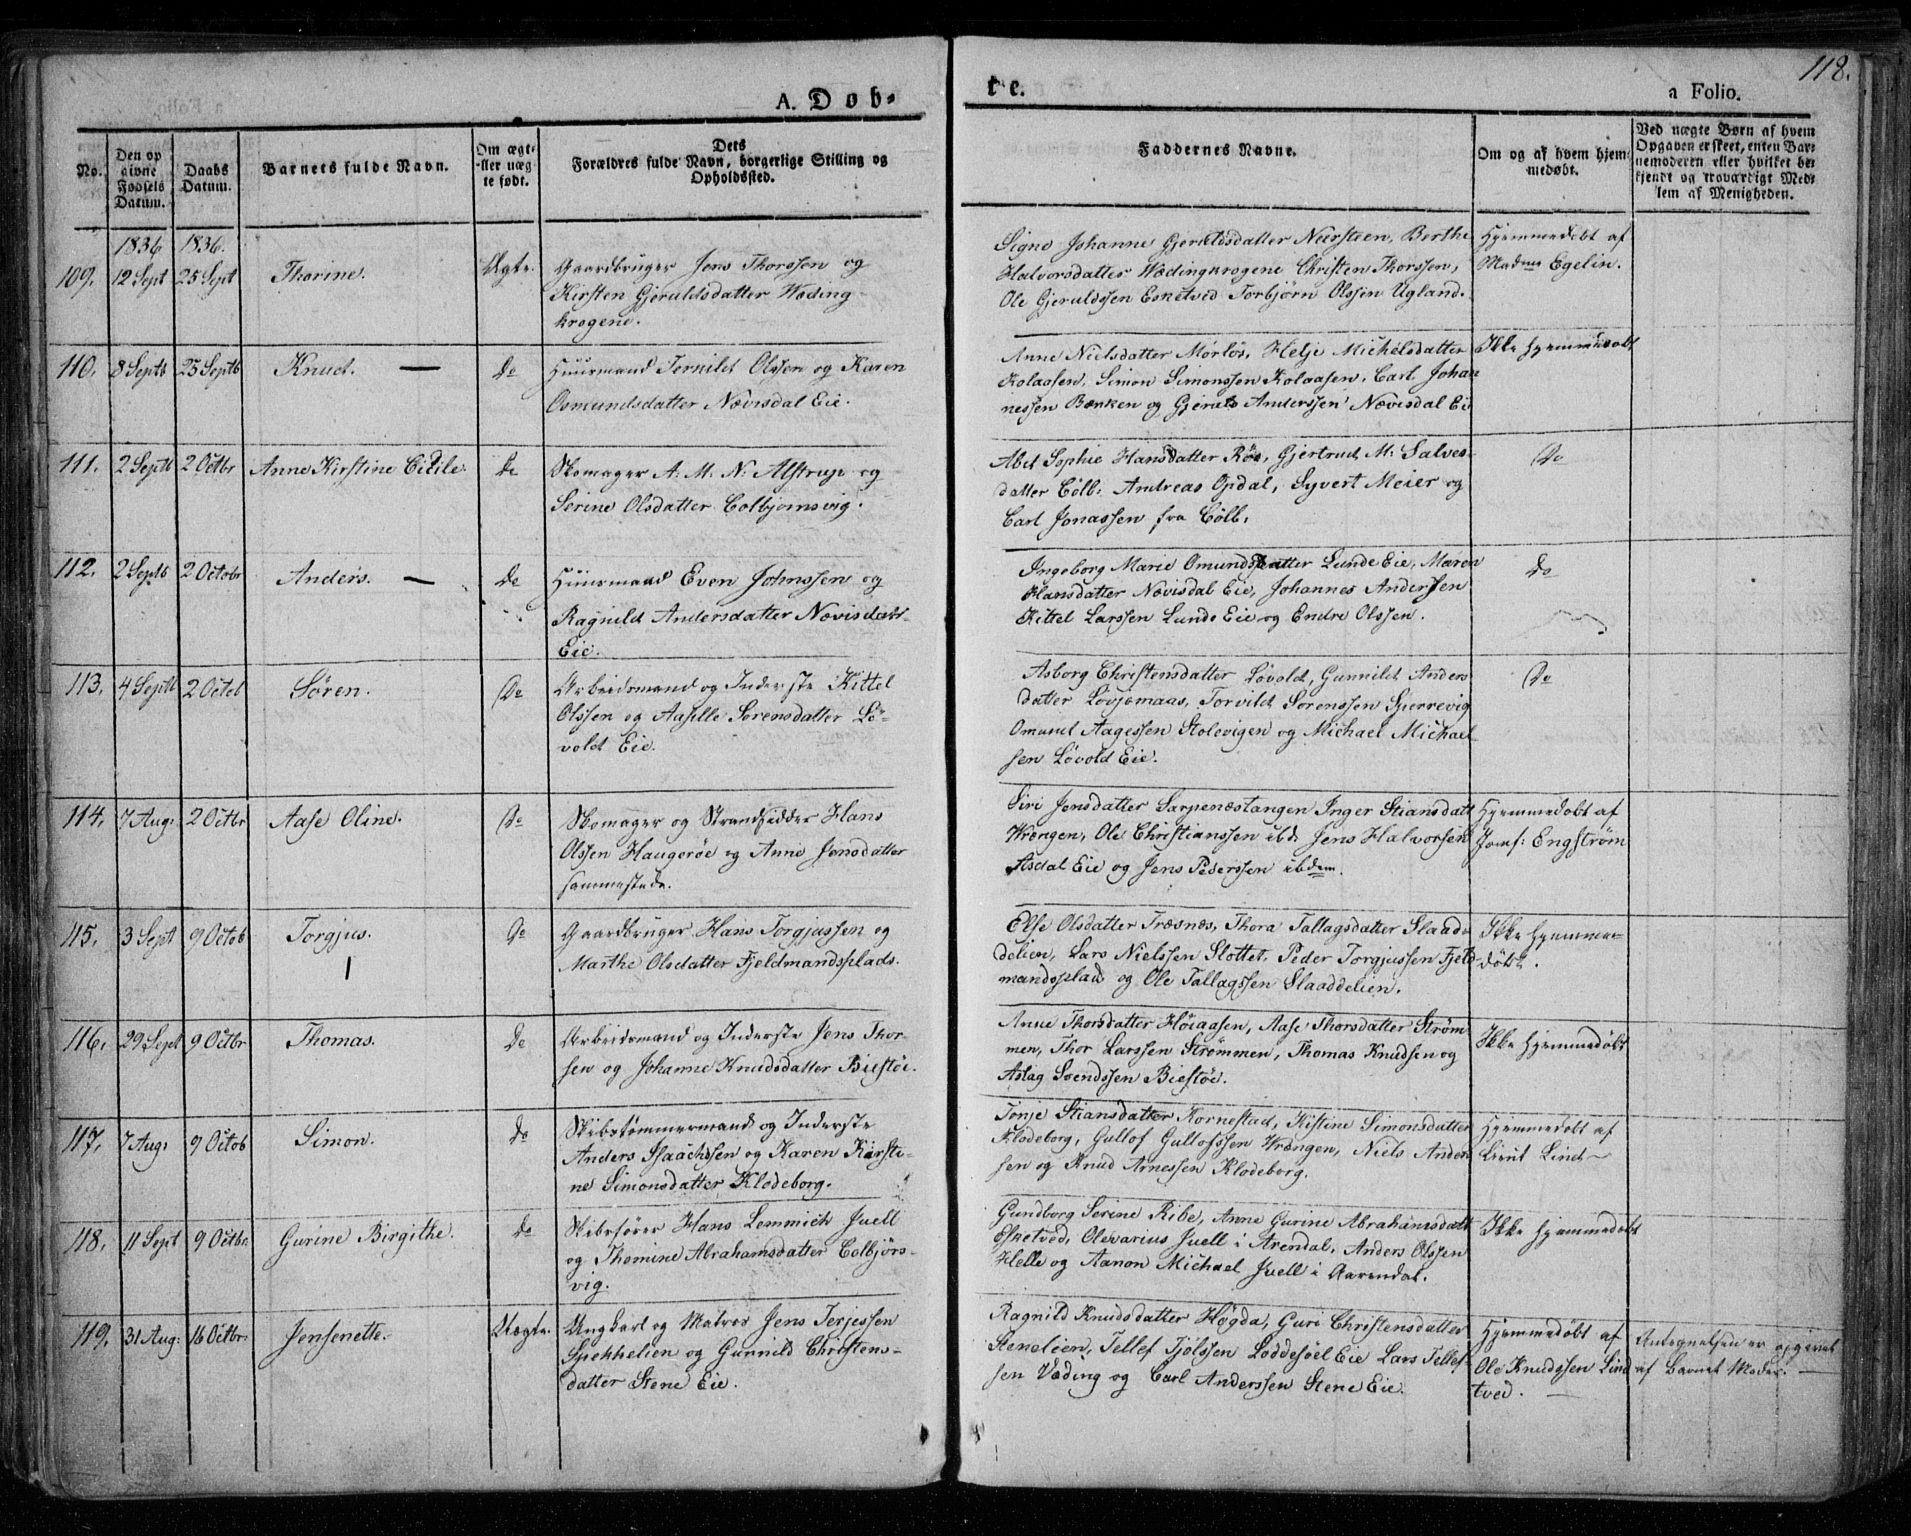 118.
A. Døb-
te.
a Folio.
No.
Den op
givne
Fødsels
Datum.
Daabs
Datum.
Barnets fulde Navn.
Om ægt-
eller uæg
te født.
Dets
Forældres fulde Navn, borgerlige Stilling og
Opholdssted.
Faddernes Navne.
Om og af hvem hjem-
medøbt.
Ved uægte Børn af hvem
Opgaven er skeet, enten Bar-
nemoderen eller hvilket be-
kjendt og troværdigt Med-
lem af Menigheden.
1836 1836.
109. 12 Sept 25 Sept Thorine. Ægte.
Gaardbruger Jens Thorssen og
Kirsten Gjeruldsdatter Wæding-
krogene.
Signe Johanne Gjeruldsdatter Neersteen, Berthe
Halvorsdatter Wædingkrogene Christen Thorssen,
Ole Gjeruldssen Esketved Torbjørn Olssen Ugland.
Hjemmedøbt af
Madme Egelin.
110. 8 Septb 25 Septb Knud. — Do
Huusmand Ternild Olssen og Karen
Osmundsdatter Nævisdal Eie.
Anne Nielsdatter Mørløs, Helje Michelsdatter
Kolaasen, Simon Simonssen Kolaasen, Carl Johan
nessen Bænken og Gjeruld Anderssen Nævisdal Eie
Ikke hjemmedøbt
111. 2 Septb 2 Octbr Anne Kirstine Cicile. Do
Skomager A. M. N. Alstrup og
Serine Olsdatter Colbjørnsvig.
Abel Sophie Hansdatter Röe, Gjertrud M. Salves-
datter Cölb: Andreas Opdal, Syvert Meier og
Carl Jonassen fra Cölb.
Do
112. 2 Septb 2 Octobr Anders. — Do
Huusmand Even Johnssen og
Ragnild Andersdatter Nævisdal
Eie.
Ingeborg Marie Omundsdatter Lunde Eie, Maren
Hansdatter Nævisdal Eie, Johannes Andersen
Kittel Larssen Lunde Eie og Endre Olssen.
Do
113. 4 Septb 2 Octob Søren. Do
Arbeidsmand og Inderste Kittel
Olssen og Aasille Sørensdatter Lö-
vold Eie.
Asborg Christensdatter Lövold, Gunnild Anders
datter Lovjomaas, Torvild Sørenssen Sjerrevig
Omund Aagessen Stolevigen og Michael Michael
sen Lövold Eie.
Do
114. 7 Aug: 2 Octbr Aase Oline. Do
Skomager og Strandsidder Hans
Olssen Haugeröe og Anne Jensdatter
sammesteds.
Siri Jensdatter Sarpenæstangen Inger Stiansdatt
Wrængen, Ole Christianssen ibd. Jens Halvorsen
Asdal Eie og Jens Pederssen ibdem.
Hjemmedøbt af
Jomf: Engström
115. 3 Sept 9 Octob Torgjus. Do
Gaardbruger Hans Torgjussen og
Marthe Olsdatter Fjeldmandsplads.
Else Olsdatter Træsnæs, Thora Tallagsdatter Slaad-
delien, Lars Nielssen Slottet, Peder Torgjussen Fjeld
mandsplad og Ole Tallagssen Slaaddelien.
Ikke hjemme-
døbt.
116. 29 Sept 9 Octbr Thomas. Do
Arbeidsmand og Inderste Jens Thor-
sen og Johanne Knudsdatter Biestöe.
Anne Thorsdatter Höiaasen, Aase Thorsdatter Ström
men, Thor Larssen Strömmen, Thomas Knudsen og
Aslag Svendssen Biestöe.
Ikke hjemmedøbt
117. 7 Aug: 9 Octob Simon. Do
Skibstømmermand og Inderste
Anders Isaachssen og Karen Kirsti-
ne Simonsdatter Klodeborg.
Tonje Stiansdatter Kornestad, Kistine Simonsdatter
Klodeborg, Gullof Gullofssen Wrængen, Niels Ander
sen og Knud Arnessen Klodeborg.
Hjemmedøbt af
Lieut Lind
118. 11 Sept 9 Octbr: Gurine Birgithe. Do
Skibsfører Hans Lemmich Juell
og Thomine Abrahamsdatter Colbjørs-
vig.
Gundborg Serine Ribe, Anne Gurine Abrahamsdatt
Esketved, Olevarius Juell i Arendal, Anders Olssen
Helle og Aanon Michael Juell i Aarendal.
Ikke hjemmedøbt
119. 31 Aug: 16 Octbr: Jensenette. Uægte.
Ungkarl og Matros Jens Terjessen
Spekkelien og Gunnild Christens-
datter Stene Eie.
Ragnild Knudsdatter Høgda, Guri Christensdatter
Stenelien, Tellef Tjölssen Löddesöel Eie Lars Tellef
sen Væding og Carl Anderssen Stene Eie.
Hjemmedøbt af
Ole Knudssen Lind
tved. —
Antegnelsen er opgivet
af Barnets Moder. —